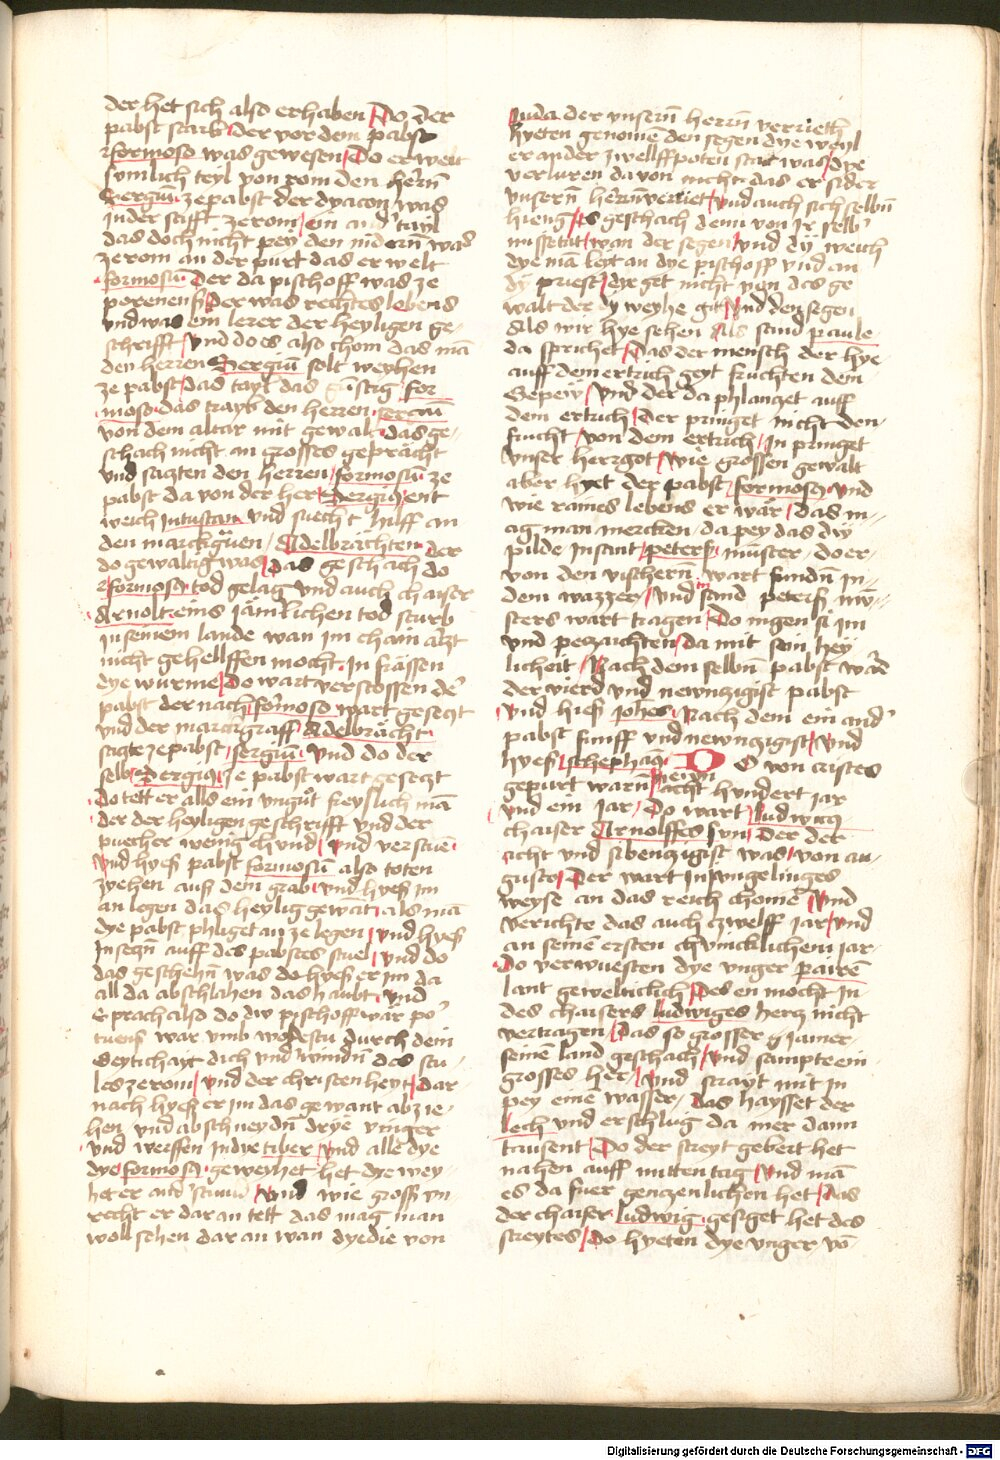 der het sich also erhaben Do der
pabst starb der vor dem pabst
formoso was gewesen Do er welt
sumlich teyl von rom den herrn
Sergiū ze pabst der dyacon was
in der stifft ze rom ein and' tayl
das doch nicht pey den nidern was
ze rom an der purt das er welt
formosū Der da pischoff was ze
der was rechtes lebens
vnd was ein lerer der heyligen ge-
schrifft vnd do es also chom das mā
den herren Sergiū solt weyhen
ze pabst das tayl das gūstig for
moso das trayb den herren sergiū
von dem altar mit gewalt das ge-
schach nicht an grosses geprächt
vnd sazten den herren formosū ze
pabst da von der her Sergig ent
weich in tuscan vnd suecht hilff an
den marckgrauen Adelbrachten der
do gewaltig was das geschach do
formosg tod gelag vnd auch chaiser
Arnolt eins iämrlichen tod starb
in seinem lande wan im chain arzt
nicht gehellffen mocht in frässen
dye wurme Do wart verstossen de'
pabst der nach formoso wart gesezt
vnd der marckgraff Adelbracht
sazte ze pabst sergiū vnd do der
selb Sergig ze pabst wart gesezt
do tett er alls ein vngūt freyslich mā
der der heyligen geschrifft vnd der
puecher wenig chund vnd verstuē
vnd hyeß pabst formosū also toten
ziehen auß dem grab vnd hyeß im
an legen das heylig gewāt als mā
dye pabst phliget an ze legen vnd hyeß
in sezn auff des pabstes stuel vnd do
das geschehn was do hyeß er im da
all da abschlahen das haubt vnd
sprach also do dw pischoff war po'
tuens war vmb wolstu durch dein
geytichayt dich vnd' windn des stu-
les ze rom vnd der christenheyt Dar
nach hyeß er im das gewant ab zie-
hen vnd abschneydn drye vinger
vnd werffen in dye tiber vnd alle dye
dye formosg geweyhet het dye wey-
het er and'stund vnd wie groß vn
recht er daran tett das mag man
woll sehen dar an wan dye die von
Juda der vnsern herrn verrieth
hyeten genome den segen dye weyl
er an der zwellffpoten stat was dye
verluren da von nicht das er sider
vnsern herrn verriet vnd auch sich selbn
hieng es geschach denn von Jr selb'
missetat wan der segen vnd dy weich
dye mā legt an dye pischoff vnd an
dy priest dye get nicht von das ge
walt der dy weyhe git vnd den segen
Als wir hye sehen Als sand paule
da sprichet Das der mensch der hye
auff dem ertrich geyt fruchten dem
vnd der da phlanzet auff
dem ertrich der pringet nicht den
frucht von dem ertrich in pringet
vnser herrgot wie grossen gewalt
aber hyet der pabst formosg vnd
wie raines lebens er war das m-
ag man mercken da pey das dw
pilde in sant peters muster do er
von den vischern wart fundn in
dem wazzer vnd sand peters mū-
sters wart tragen Do nigen si im
vnd pezaichten da mit sein hey
licheit Nach dem selbn pabst ward
der vierd vnd newnzigist pabst
vnd hieß Johēs Nach dem ein and'
pabst funff vnd newnzigist vnd
hyeß stephāg Do von cristes
gepurt warn acht hundert iar
vnd ein jar Do wart ludwicg
chaiser Arnolffes sun Der der
acht vnd sibenzigist was von au-
gusto Der wart in iungelinges
weyse an das reich chomē vnd
verichte das auch czwelff jar vnd
an seinē ersten chünicklichem jar
Do verwuesten dye vnger pairē
lant geweltichlich Des en mocht in
des chaisers ludwiges hercz nicht
vertragen Das so grosser iamer
seinē land geschach vnd sampte ein
grosses her vnd strayt mit in
pey eine wasser das haysset der
lech vnd erschlug da mer dann
tausent Do der streyt gebert het
nahen auff mitten tag vnd mā
es da fuer genczenlichen het das
der chaiser ludwig gesiget het des
streytes Do hyeten dye vnger vō
Digitalisierung gefördert durch die Deutsche Forschungsgemeinschaft - DFG